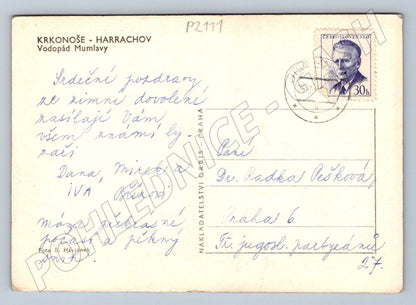 P2111
KRKONOŠE - HARRACHOV
Vodopád Mumlavy
ČESKOSLOVENSKO
30h
Srdečné pozdravy
ze zimní dovolené
zasílají Vám
všem známí ly-
žaři
Dana, Mirek a
IVA
Máme překrásné
počasí a pěkný
sníh.
Foto S. Havránek
NAKLADATELSTVÍ ORBIS - PRAHA
Paní
Dr. Radka Pešková,
Praha 6
Tř. jugosl. partyzánů
27.
POHLEDNICE - PRAH